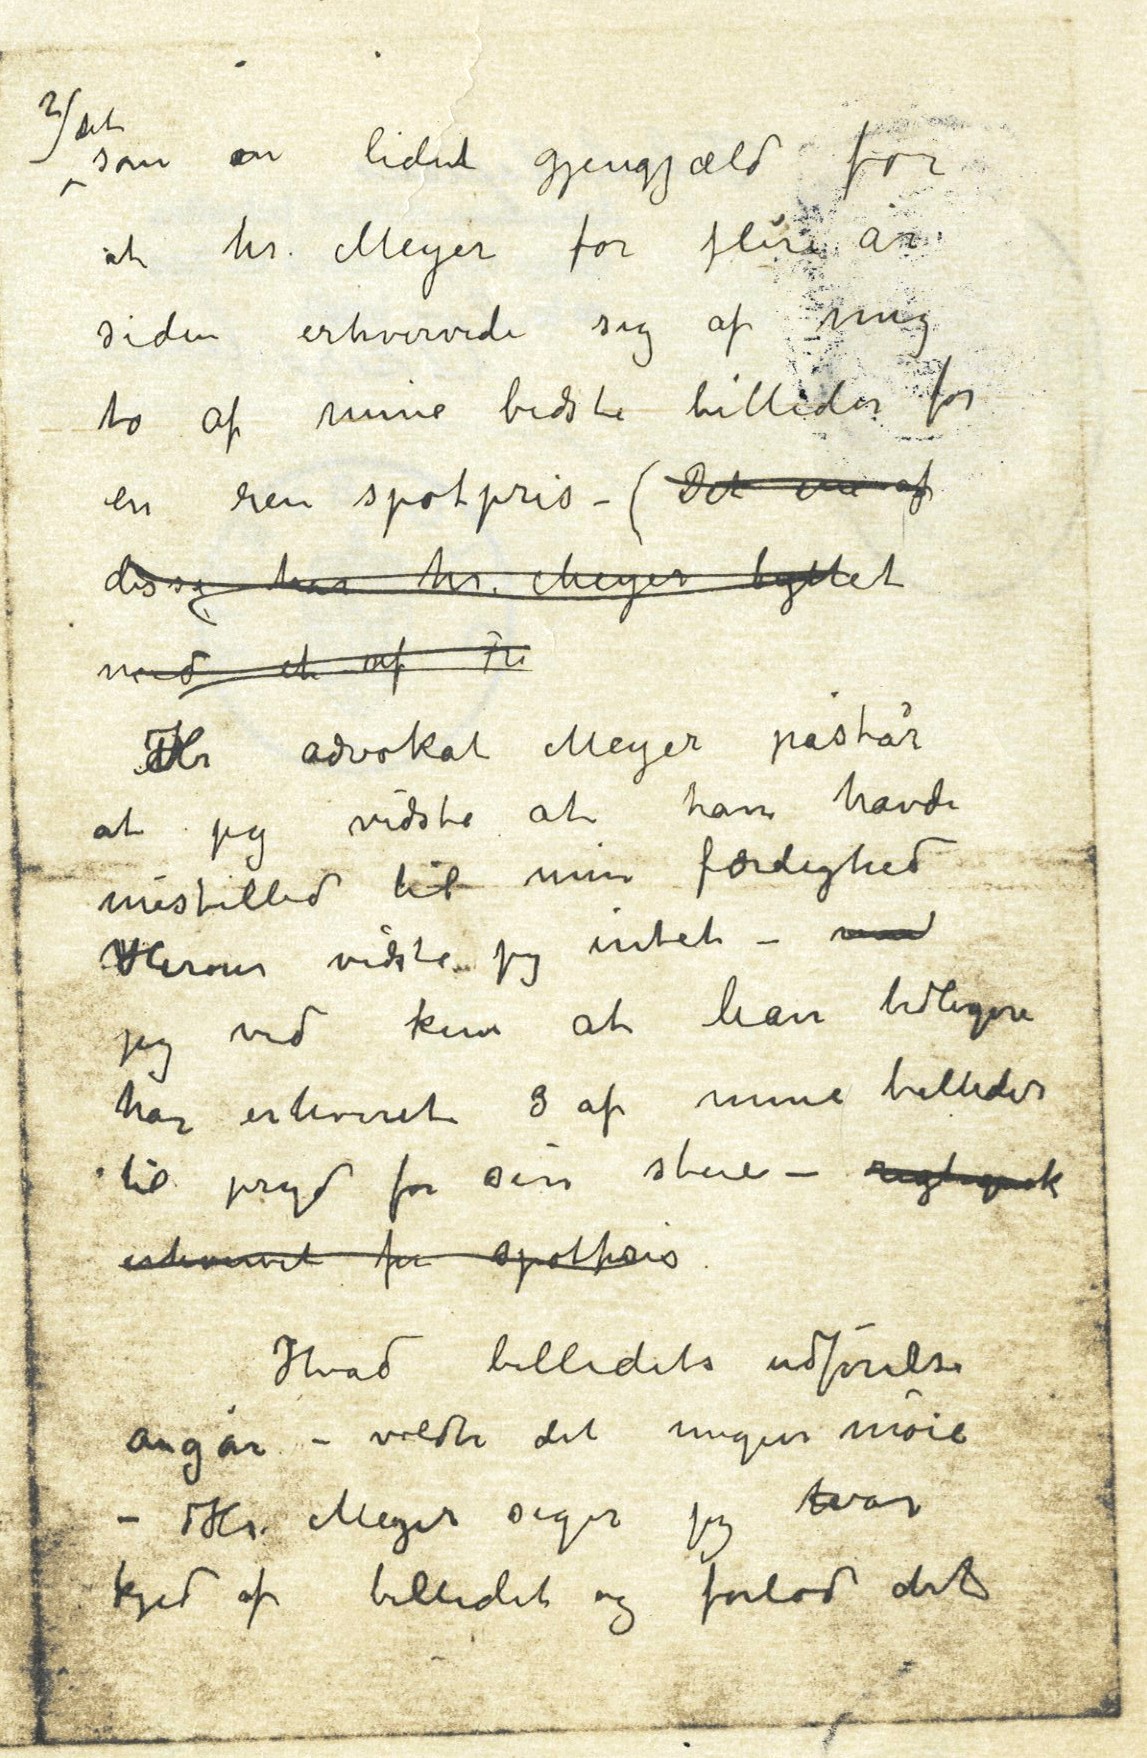 2/ det
som en liden gjengjæld for
at hr. Meyer for flere år
siden erhvervede sig af mig
to af mine bedste billeder for
en ren spotpris – (Det ene af
disse har hr. Meyer byttet
med et af
Hr advokat Meyer påstår
at jeg vidste at han havde
mistillid til min færdighed
Herom vidste jeg intet – med
jeg ved kun at han tidligere
har erhvervet 3 af mine billeder
til pryd for sin stue –
erhvervet for spotpris.
Hvad billedets udførelse
angår – voldte det megen møie
– Hr. Meyer siger jeg var
kjed af billedet og forlod det